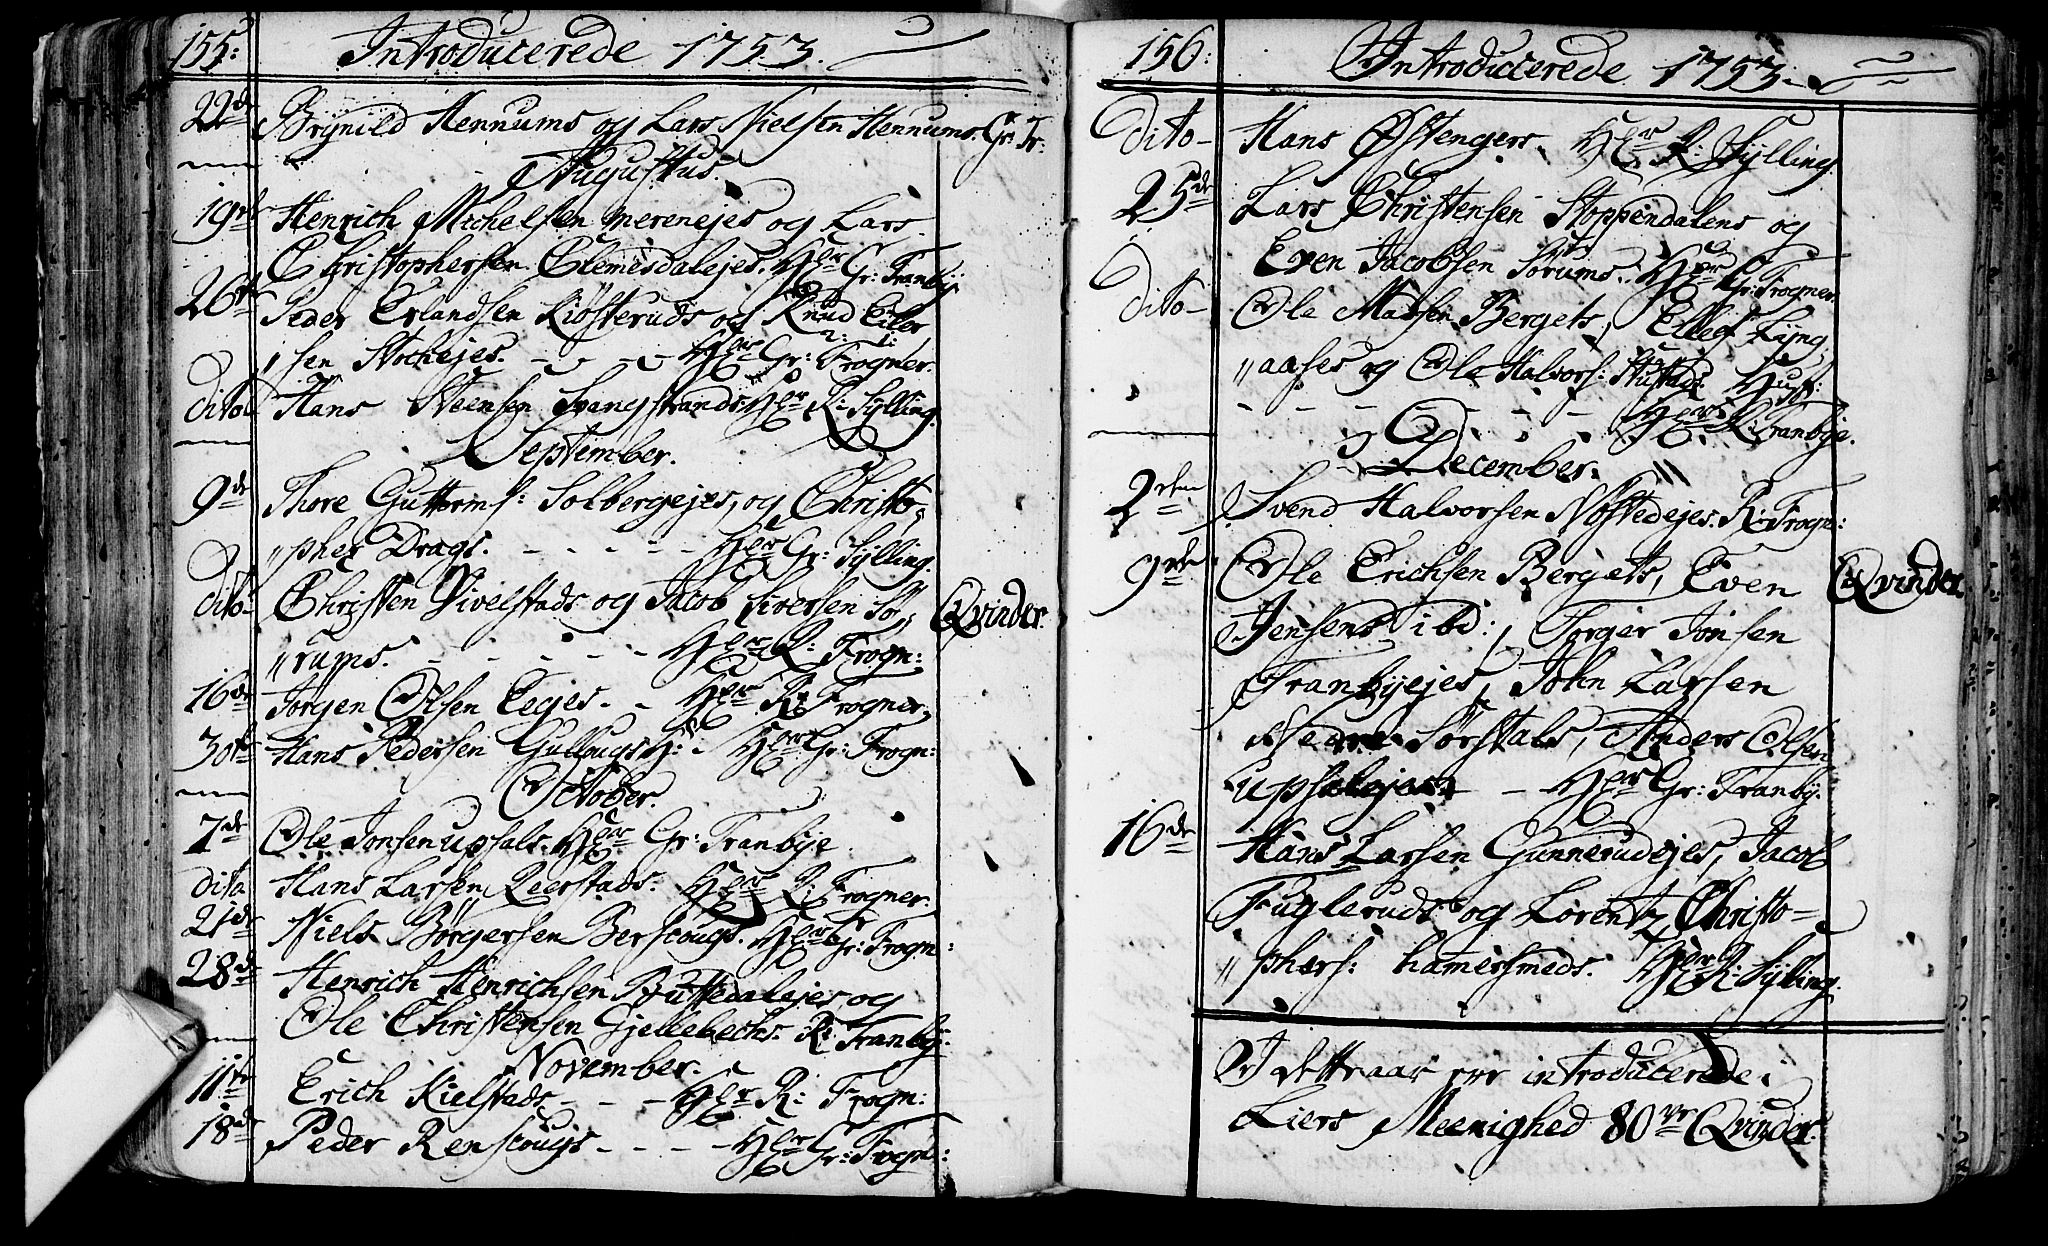 155: Introducerede 1753.
22de Brynild Hennums og Lars Nielsen Hennums. Gr: Fr:
Augustus.
19de Henrich Michelsen merenejes og Lars
Christophersen Clemesdalejes. Hr Gr: Tranby
26de Peder Erlandsen Kiøsteruds og Knud Eiler
"sen Stochejes. - - - - Hr Gr: Frogner.
Dito Hans Steensen Svangstrands Hr R: Sylling.
September.
9de Thore Guttormf: Solbergejes, og Christo,,
"pher Drags. - - - - - Hr Gr: Sylling.
dito Christen Vivelstads og Jacob Siversen Sø,, Qvinder
"rums. - - - - - - Hr R: Frogn:
16de Jørgen Olsen Eeges. - - Hr R: Frogner,
30te Hans Pedersen Gullaugs - Hr Gr: Frogn:
October.
7de Ole Jonsen upsals. Hr Gr: Tranbye.
dito Hans Larsen Reerstads. Hr R: Frogner.
21de Niels Børgersen Berscougs. Hr Gr: Frogn:
28de Henrich Henrichsen Buttedalejes og
Ole Christensen Gjellebechs. R: Tranby:
November.
11te Erich Kielstads - - - Hr R: Frogn:
18de Peder Renscougs - - - - Hr Gr: Frogn:
156: Introducerede 1753.
Dito Hans Østengers. Hr R: Sylling.
25de Lars Christensen Stoppendalens og
Even Jacobsen Sørums. Hr Gr: Frogner.
Dito Ole Madsen Bergets, Ellef Lyng,
"aases og Ole Halvors: Hust:
- - - - - - - - Hr R: Tranbye.
December.
2den Svend Halvorsen Nøstedejes. R: Frogn:
9de Ole Erichsen Bergets, Even Qvinder
Jensens ibd:, Torger Jonsen
Tranbyejes, John Larsen
Nedre Sørstals, Anders Olsen
upsalejes - Hr Gr: Tranby.
16de Hans Larsen Gunnerudejes, Jacob
Fugleruds og Lorentz Christo-
"phers: hamersmeds. Hr R: Sylling.
I dette aar ere introducerede i
Liers Meenighed 80ve Qvinder.